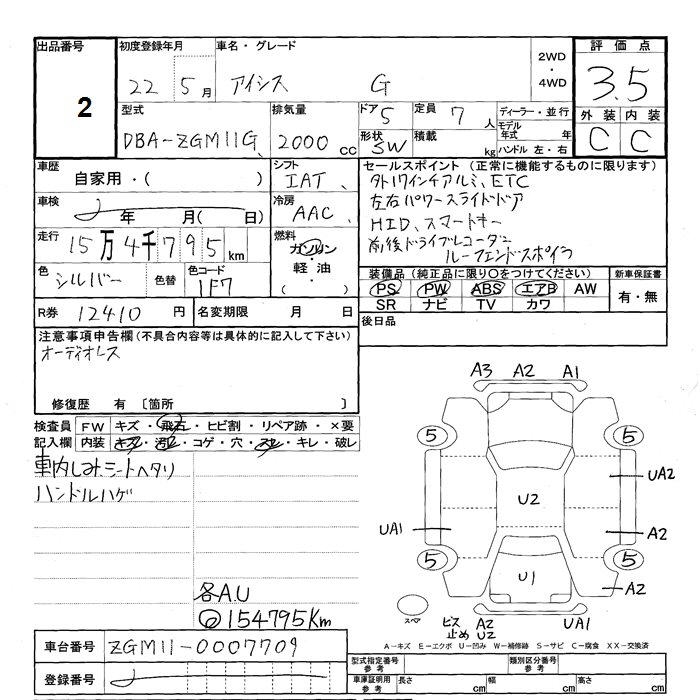 出品番号
2
初度登録年月
22 5月
車名・グレード
アイシス G
2WD
・
4WD
評価点
3.5
外装 内装
C C
型式
DBA-ZGM11G
排気量
2000cc
ドア 5
形状 SW
定員 7人
積載 kg
ディーラー・並行
モデル年式 年
ハンドル 左・右
車歴
自家用・( )
シフト
IAT
車検
年 月(日)
冷房
AAC
走行
15万4千795km
燃料
ガソリン
・
軽油
・
( )
色
シルバー
色替
色コード
1F7
セールスポイント(正常に機能するものに限ります)
タト17インチアルミ、ETC
左右パワースライドドア
HID、スマートキー
前後ドライブレコーダー
ルーフエンドスポイラ
装備品(純正品に限り○をつけてください)
PS PW ABS エアB AW
SR ナビ TV カワ
新車保証書
有・無
R券 12410円
名変期限 月 日
後日品
注意事項申告欄(不具合内容等は具体的に記入して下さい)
オーディオレス
修復歴 有 〔箇所 〕
検査員記入欄
FW キズ・飛石・ヒビ割・リペア跡・×要
内装 キズ・汚れ・コゲ・穴・スレ・キレ・破レ
車内しみシートヘタリ
ハンドルハゲ
各A.U
154795Km
A3 A2 A1
5 5
UA2
U2
UA1 A2
5 5
U1
A2
スペア
ビス止め
A2
U2
UA1
A-キズ E-エクボ U-凹み W-補修跡 S-サビ C-腐食 XX-交換済
車台番号 ZGM11-0007709
登録番号
型式指定番号 参考
類別区分番号 参考
車庫証明用 参考
長さ cm 幅 cm 高さ cm